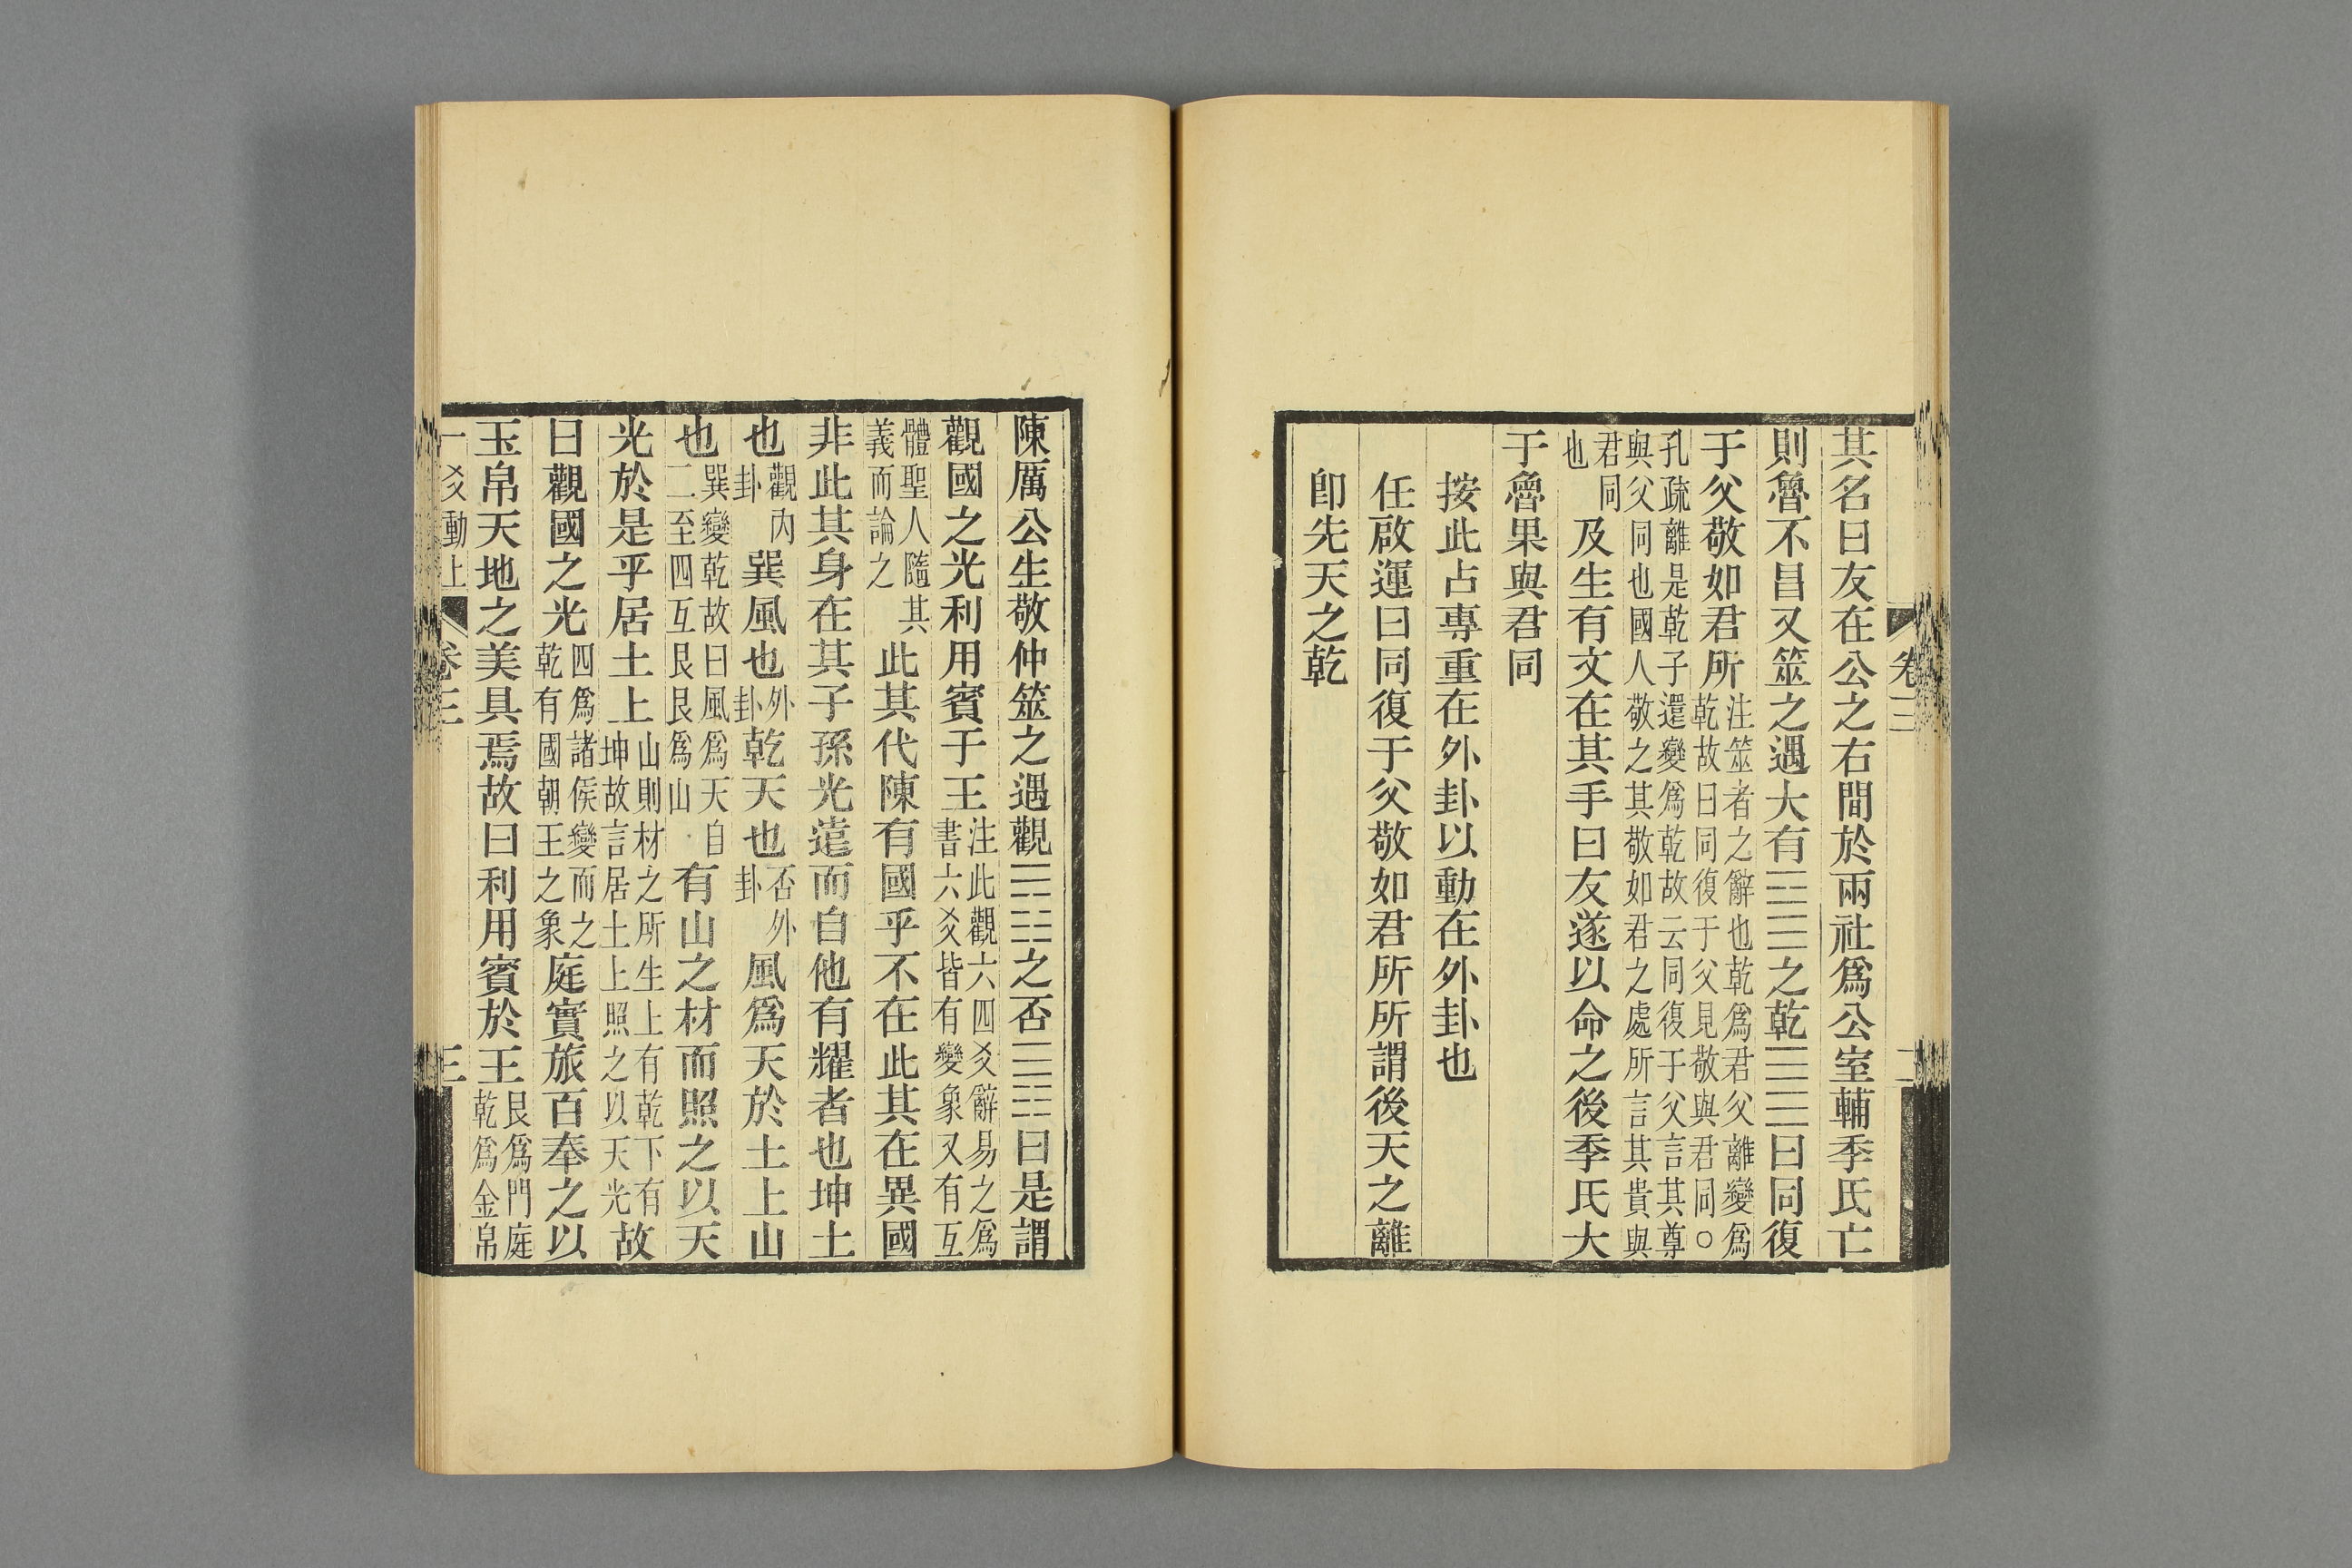 卷三 二
其名曰友在公之右間於兩社爲公室輔季氏亡
則魯不昌又筮之遇大有䷍之乾䷀曰同復
于父敬如君所
注筮者之辭也乾爲君父離變爲
乾故曰同復于父見敬與君同○
孔疏離是乾子還變爲乾故云同復于父言其尊
與父同也國人敬之其敬如君之處所言其貴與
君同
也
及生有文在其手曰友遂以命之後季氏大
于魯果與君同
按此占專重在外卦以動在外卦也
任啟運曰同復于父敬如君所所謂後天之離
卽先天之乾
陳厲公生敬仲筮之遇觀䷓之否䷋曰是謂
觀國之光利用賓于王
注此觀六四爻辭易之爲
書六爻皆有變象又有互
體聖人隨其
義而論之
此其代陳有國乎不在此其在異國
非此其身在其子孫光遠而自他有耀者也坤土
也
觀內
卦
巽風也
外
卦
乾天也
否外
卦
風爲天於土上山
也
巽變乾故曰風爲天自
二至四互艮艮爲山
有山之材而照之以天
光於是乎居土上
山則材之所生上有乾下有
坤故言居土上照之以天光
故
曰觀國之光
四爲諸侯變而之
乾有國朝王之象
庭實旅百奉之以
玉帛天地之美具焉故曰利用賓於王
艮爲門庭
乾爲金帛
一爻動上 卷三 三